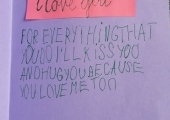 I love you
FOR EVERYTHING THAT
YOU DO I'LL KISS YOU
AND HUG YOU BECAUSE
YOU LOVE ME TOO